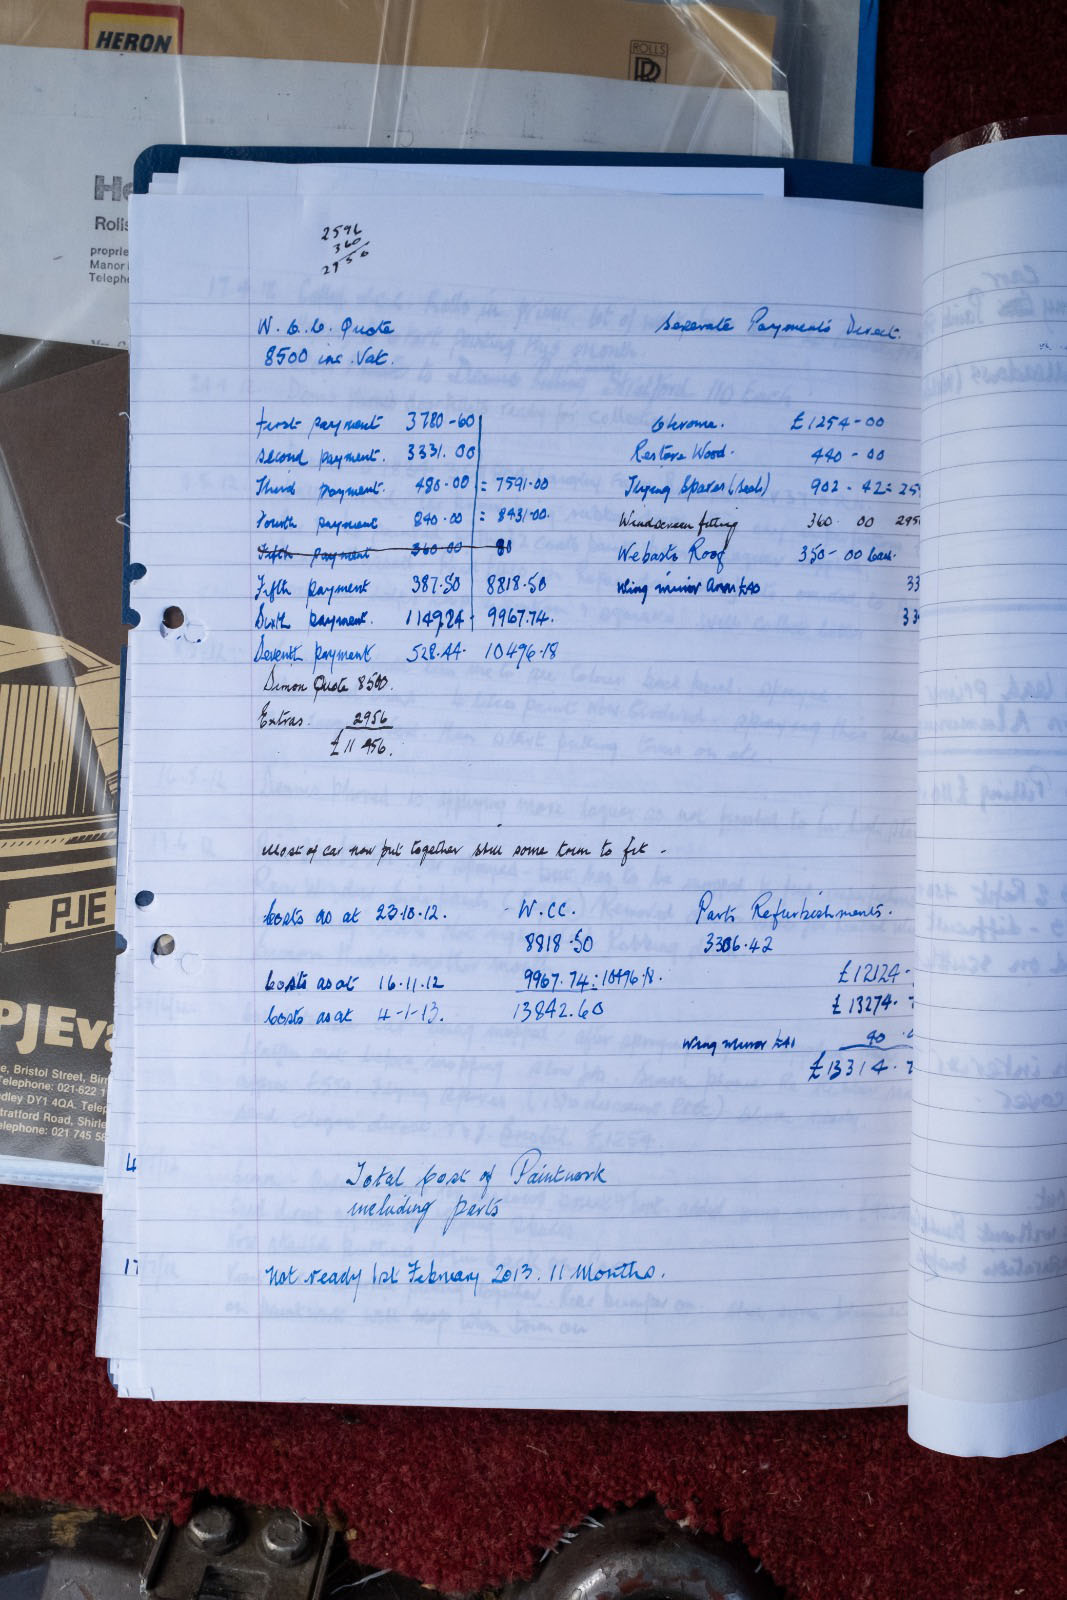 HERON
ROLLS
RR
He
Rolls
proprie
Manor
Teleph
2596
360
2956
W.C.C. Quote
8500 inc. Vat.
Seperate Payments Direct.
First payment 3780-60
Second payment. 3331.00
Third payment. 480.00 = 7591-00
Fourth payment 840.00 = 8431-00.
Fifth payment 360-00 80
Fifth payment 387.50 8818.50
Sixth payment. 1149.24 - 9967.74.
Seventh payment 528.44. 10496.18
Simon Quote 8500.
Extras. 2956
£11456.
Chrome. £1254-00
Restore Wood. 440-00
Flying Spares (seals) 902-42 = 259
Windscreen fitting 360 00 295
Webasto Roof 350-00
Wing mirror £40 33
33
Most of car now put together still some trim to fit -
Costs as at 23.10.12. W.CC. Parts Refurbishments.
8818.50 3306.42
Costs as at 16.11.12 9967.74 = 10496.18. £12124-
Costs as at 4-1-13. 13842.60 £13274.7
Wing mirror £40
£13314.7
Total Cost of Paintwork
including parts
Not ready 1st February 2013. 11 Months.
4
17
PJE
PJEva
e, Bristol Street, Birm
elephone: 021-622 1
dley DY1 4QA. Telep
tratford Road, Shirle
elephone: 021 745 58